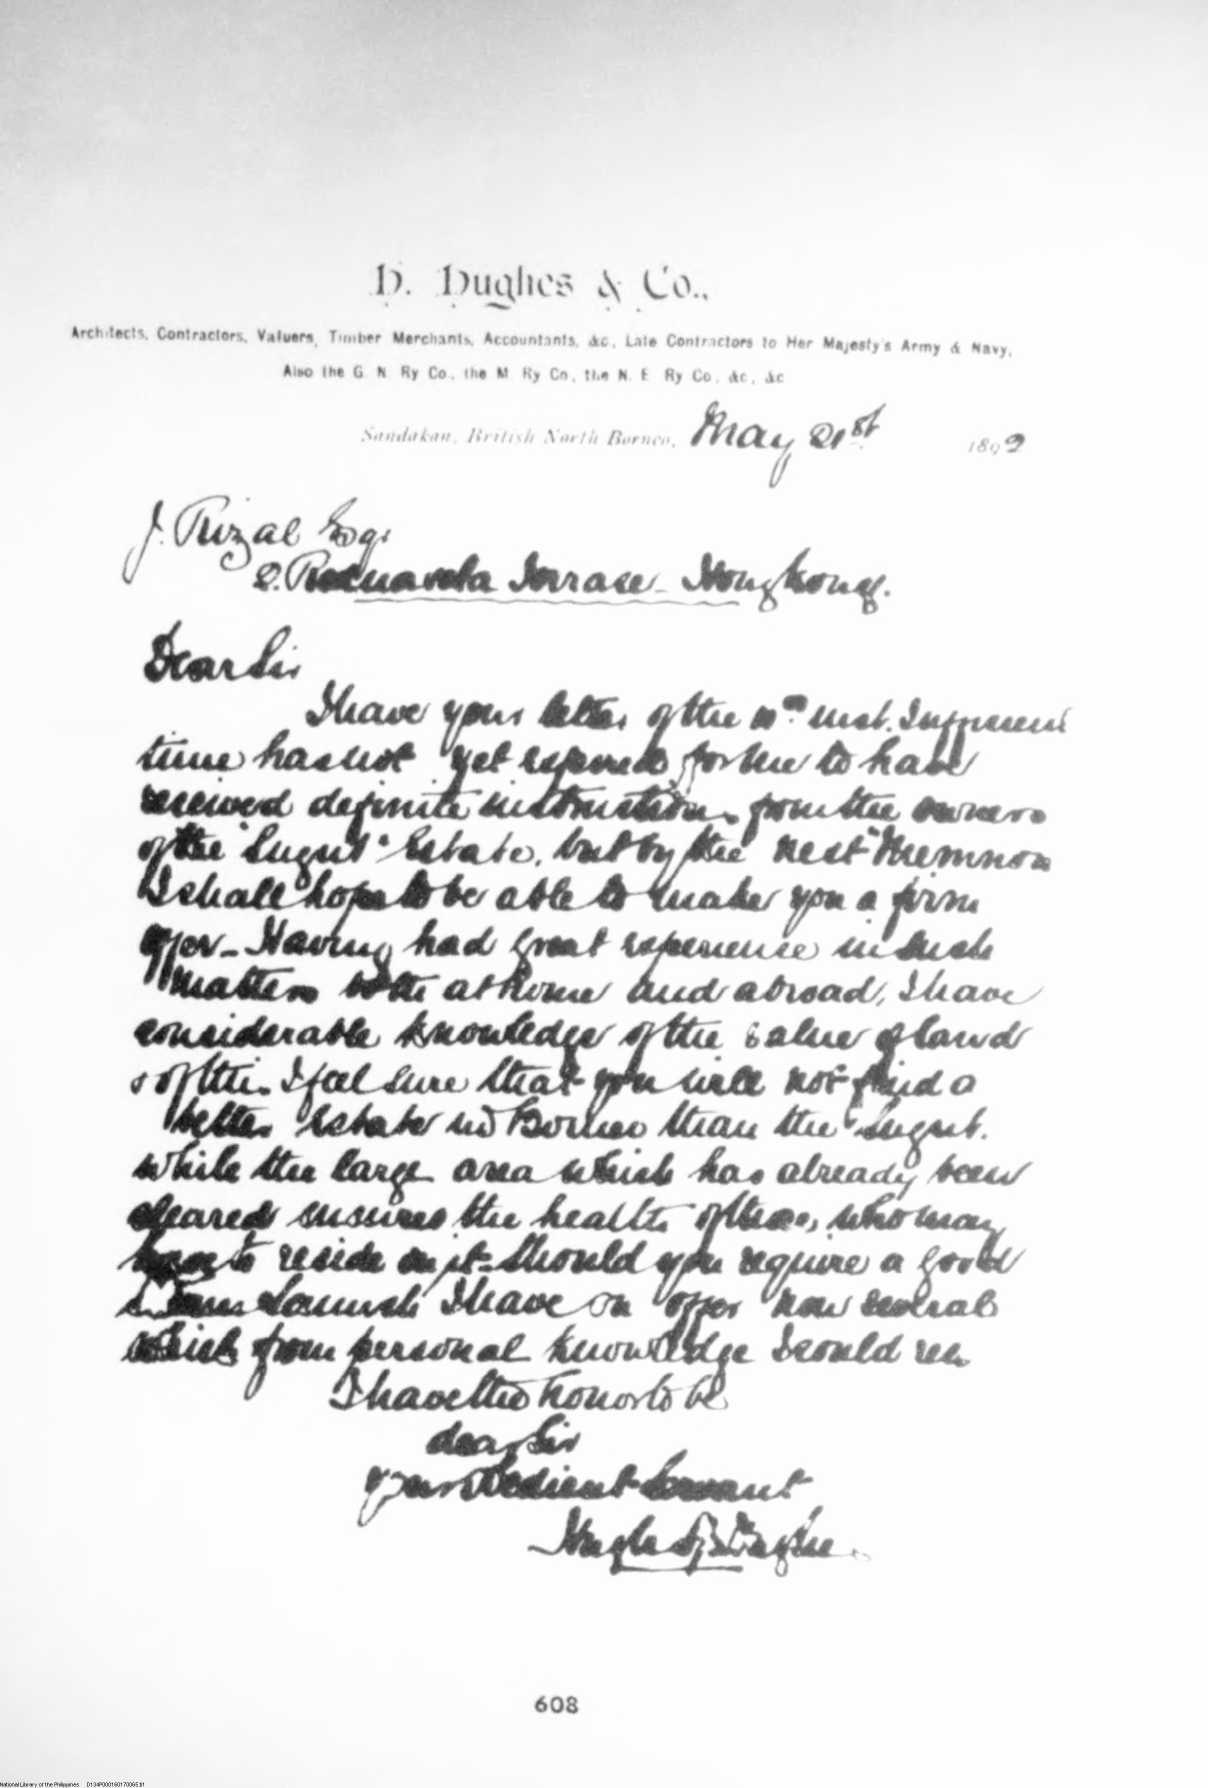 H. Hughes & Co.,
Architects, Contractors, Valuers, Timber Merchants, Accountants, &c, Late Contractors to Her Majesty's Army & Navy,
Also the G. N. Ry Co., the M. Ry Co, the N. E. Ry Co, &c, &c
Sandakan, British North Borneo, May 21st 1892
J. Rizal Esq.
2. Rednaxela Terrace - Hong Kong.
Dear Sir
I have your letter of the inst. Insufficient
time has not yet expired for me to have
received definite instructions from the owners
of the "Sugut" Estate, but by the next "Memnon"
I shall hope to be able to make you a firm
offer - Having had great experience in such
matters both at home and abroad, I have
considerable knowledge of the value of land
& of this I feel sure that you will not find a
better Estate in Borneo than the "Sugut".
while the large area which has already been
cleared ensures the health of those, who may
have to reside on it - Should you require a good
Steam Launch I have on offer now several
which from personal knowledge I could
I have the honor to be
dear Sir
your obedient Servant
608
National Library of the Philippines